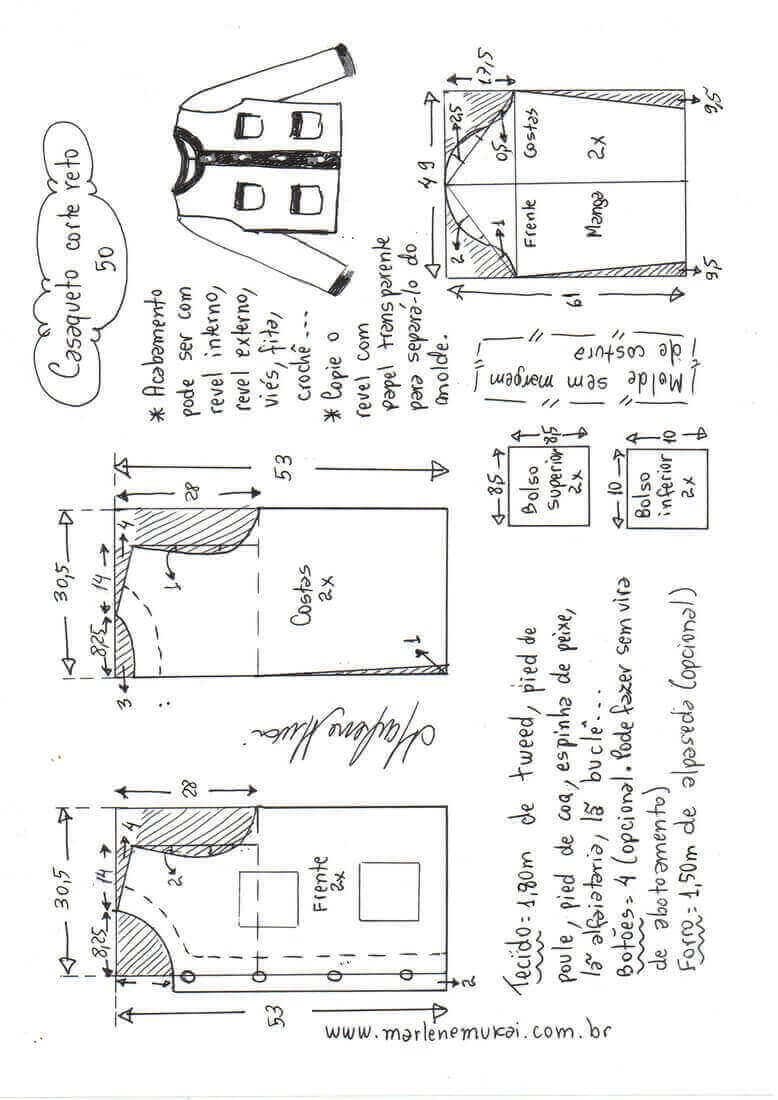 Casaqueto corte reto
50
* Acabamento
pode ser com
revel interno,
revel externo,
viés, fita,
crochê...
* Copie o
revel com
papel transparente
para separá-lo do
molde.
17,5
49
2,5
0,5
Costas
2x
2
1
Frente
Manga
61
9,5
9,5
Molde sem margem
de costura
53
28
30,5
14
4
8,25
3
1
Costas
2x
1
8,5
8,5
Bolso
superior
2x
10
10
Bolso
inferior
2x
53
28
30,5
14
4
8,25
2
Frente
2x
2
Tecido = 1,80m de tweed, pied de
poule, pied de coq, espinha de peixe,
lã alfaiataria, lã buclê...
Botões = 4 (opcional. Pode fazer sem vira
de abotoamento)
Forro = 1,50m de alpaseda (opcional)
Marlene Mukai
www.marlenemukai.com.br